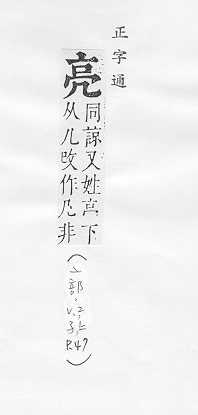 正字通
亮
同諒又姓亮下
从儿改作几非
(亠部,
P.47)